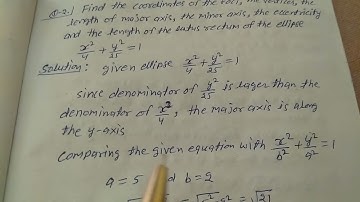 Q-2.) Find the coordinates of the foci, the vertices, the
length of major axis, the minor axis, the eccentricity
and the length of the latus rectum of the ellipse
x²/4 + y²/25 = 1
Solution: given ellipse x²/4 + y²/25 = 1
since denominator of y²/25 is larger than the
denominator of x²/4, the major axis is along
the y-axis
comparing the given equation with x²/b² + y²/a² = 1
a = 5 b = 2
= √21